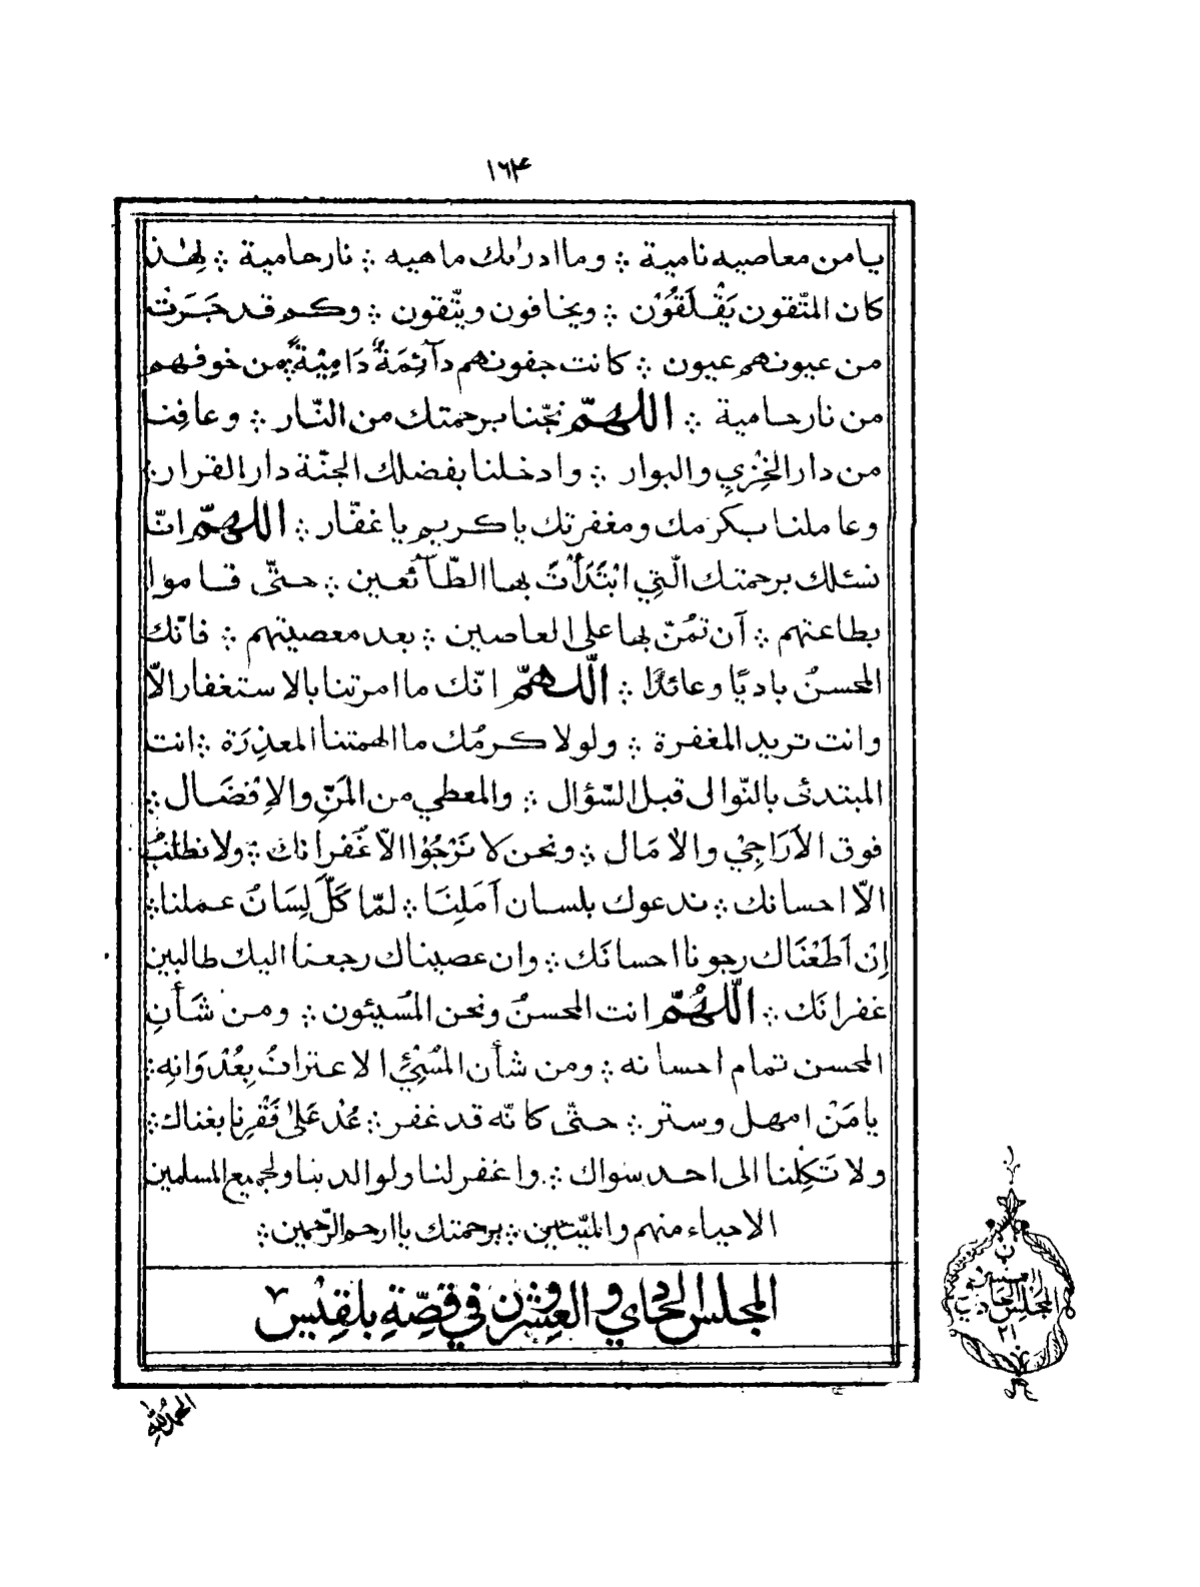 ۱۶۴
يا من معاصيه نامية ؞ وما ادرىك ماهيه ؞ نار حامية ؞ لِهٰذا
كان المتّقون يَقْلَقُوْن ؞ ويخافون ويتّقون ؞ وكم قد جَرَتْ
من عيونهم عيون ؞ كانت جفونهم دآئِمَةً دَامِيْةً ؞ من خوفهم
من نار حامية ؞ اللهمّ نجّنا برحمتك من النّار ؞ وعافِنا
من دار الخِزيِ والبوار ؞ وادخلنا بفضلك الجنّة دار القرار ؞
وعاملنا بكرمك ومغفرتك يا كريم يا غفّار ؞ اللهمّ انّا
نسئلك برحمتك الّتِي ابْتَدَأْتَ بها الطّآئعين ؞ حتّى قاموا
بطاعتهم ؞ آن تمُنّ بها على العاصين ؞ بعد معصيتهم ؞ فانّك
المحسنُ باديًا وعائدًا ؞ اللّهمّ انّك ما امرتنا بالاستغفار الاّ
وانت تريد المغفرة ؞ ولولا كرمُك ما الهمتنا المعذِرَة ؞ انت
المبتدئ بالنّوال قبل السّؤال ؞ والمعطي من المَنِّ والاِفْضَال ؞
فوق الاَرَاجِيْ والاٰمَال ؞ ونحن لا نَرْجُوْا الاّ غُفرانك ؞ ولا نطلبُ
الاّ احسانك ؞ ندعوك بلسان آمَلِنَا ؞ لمّا كَلَّ لِسَانُ عملنا ؞
اِنْ اَطَعْنَاك رجونا احسانَك ؞ وان عصيناك رجعنا اليك طالبين
غفرانَك ؞ اللّهُمّ انت المحسنُ ونحن المُسيئون ؞ ومن شَأنِ
المحسن تمام احسانه ؞ ومن شأن المُسْئِ الاعترافُ بِعُدْوَانِهِ ؞
يا مَنْ امهل وستر ؞ حتّى كانّه قد غفر ؞ عُدْ عَلىٰ فَقْرِنا بغناك ؞
ولا تَكِلْنا الى احد سواك ؞ واغفر لنا ولوالدينا ولجميع المسلمين
الاحياء منهم والميّتين ؞ برحمتك يا ارحم الرّحمين ؞
المجلس الحَادِي وَ العِشْرُون في قصّةِ بلقِيْس
المجلس الحَادي
۲۱
الحمدُ للّٰهِ